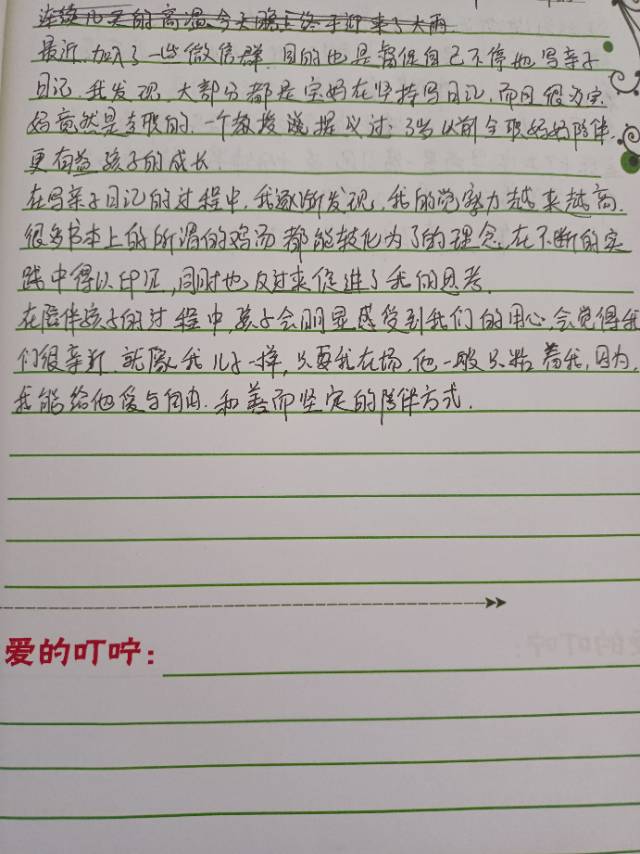 连续几天的高温,今天晚上终于迎来了大雨.
最近,加入了一些微信群,目的也是督促自己不停地写亲子
日记,我发现,大部分都是宝妈在坚持写日记,而且很多宝
妈竟然是全职的,一个教授说提议过:3岁以前全职妈妈陪伴,
更有益孩子的成长.
在写亲子日记的过程中,我逐渐发现,我的觉察力越来越高.
很多书本上的所谓的鸡汤都能转化为了的理念,在不断的实
践中得以印证,同时也反过来促进了我的思考.
在陪伴孩子的过程中,孩子会明显感受到我们的用心,会觉得我
们很亲近,就像我儿子一样,只要我在场,他一般只粘着我,因为,
我能给他爱与自由.和善而坚定的陪伴方式.
爱的叮咛: